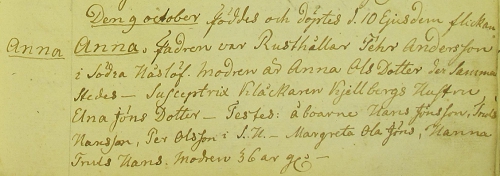 Den 9 october föddes och döptes d. 10 Ejusdem flickan
Anna Anna. Fadren var Rusthållar Pehr Andersson
i Södra Håslöf. Modren är Anna Ols Dotter der samma
stedes – Susceptrix Klåckaren Kjellbergs Hustru
Elna Jöns Dotter – Testes: åboarne Hans Jönsson, Truls
Hansson, Per Olsson i S.H. – Margreta Ola Jöns, Hanna
Truls Hans. Modren 36 år g –